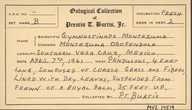 SET MARK B
Oological Collection of Pressie T. Burtis, Jr.
INCUBATION FRESH
2
Gymnostinops Montezuma
Montezuma Oropendola
Southern Vera Cruz, Mexico
April 7th, 1961. Pendulous, 4 feet
long, composed of coarse grass and fibers,
lined with dry leaves. Suspended from
frond of a royal palm, 25 feet up.
PT. Burtis